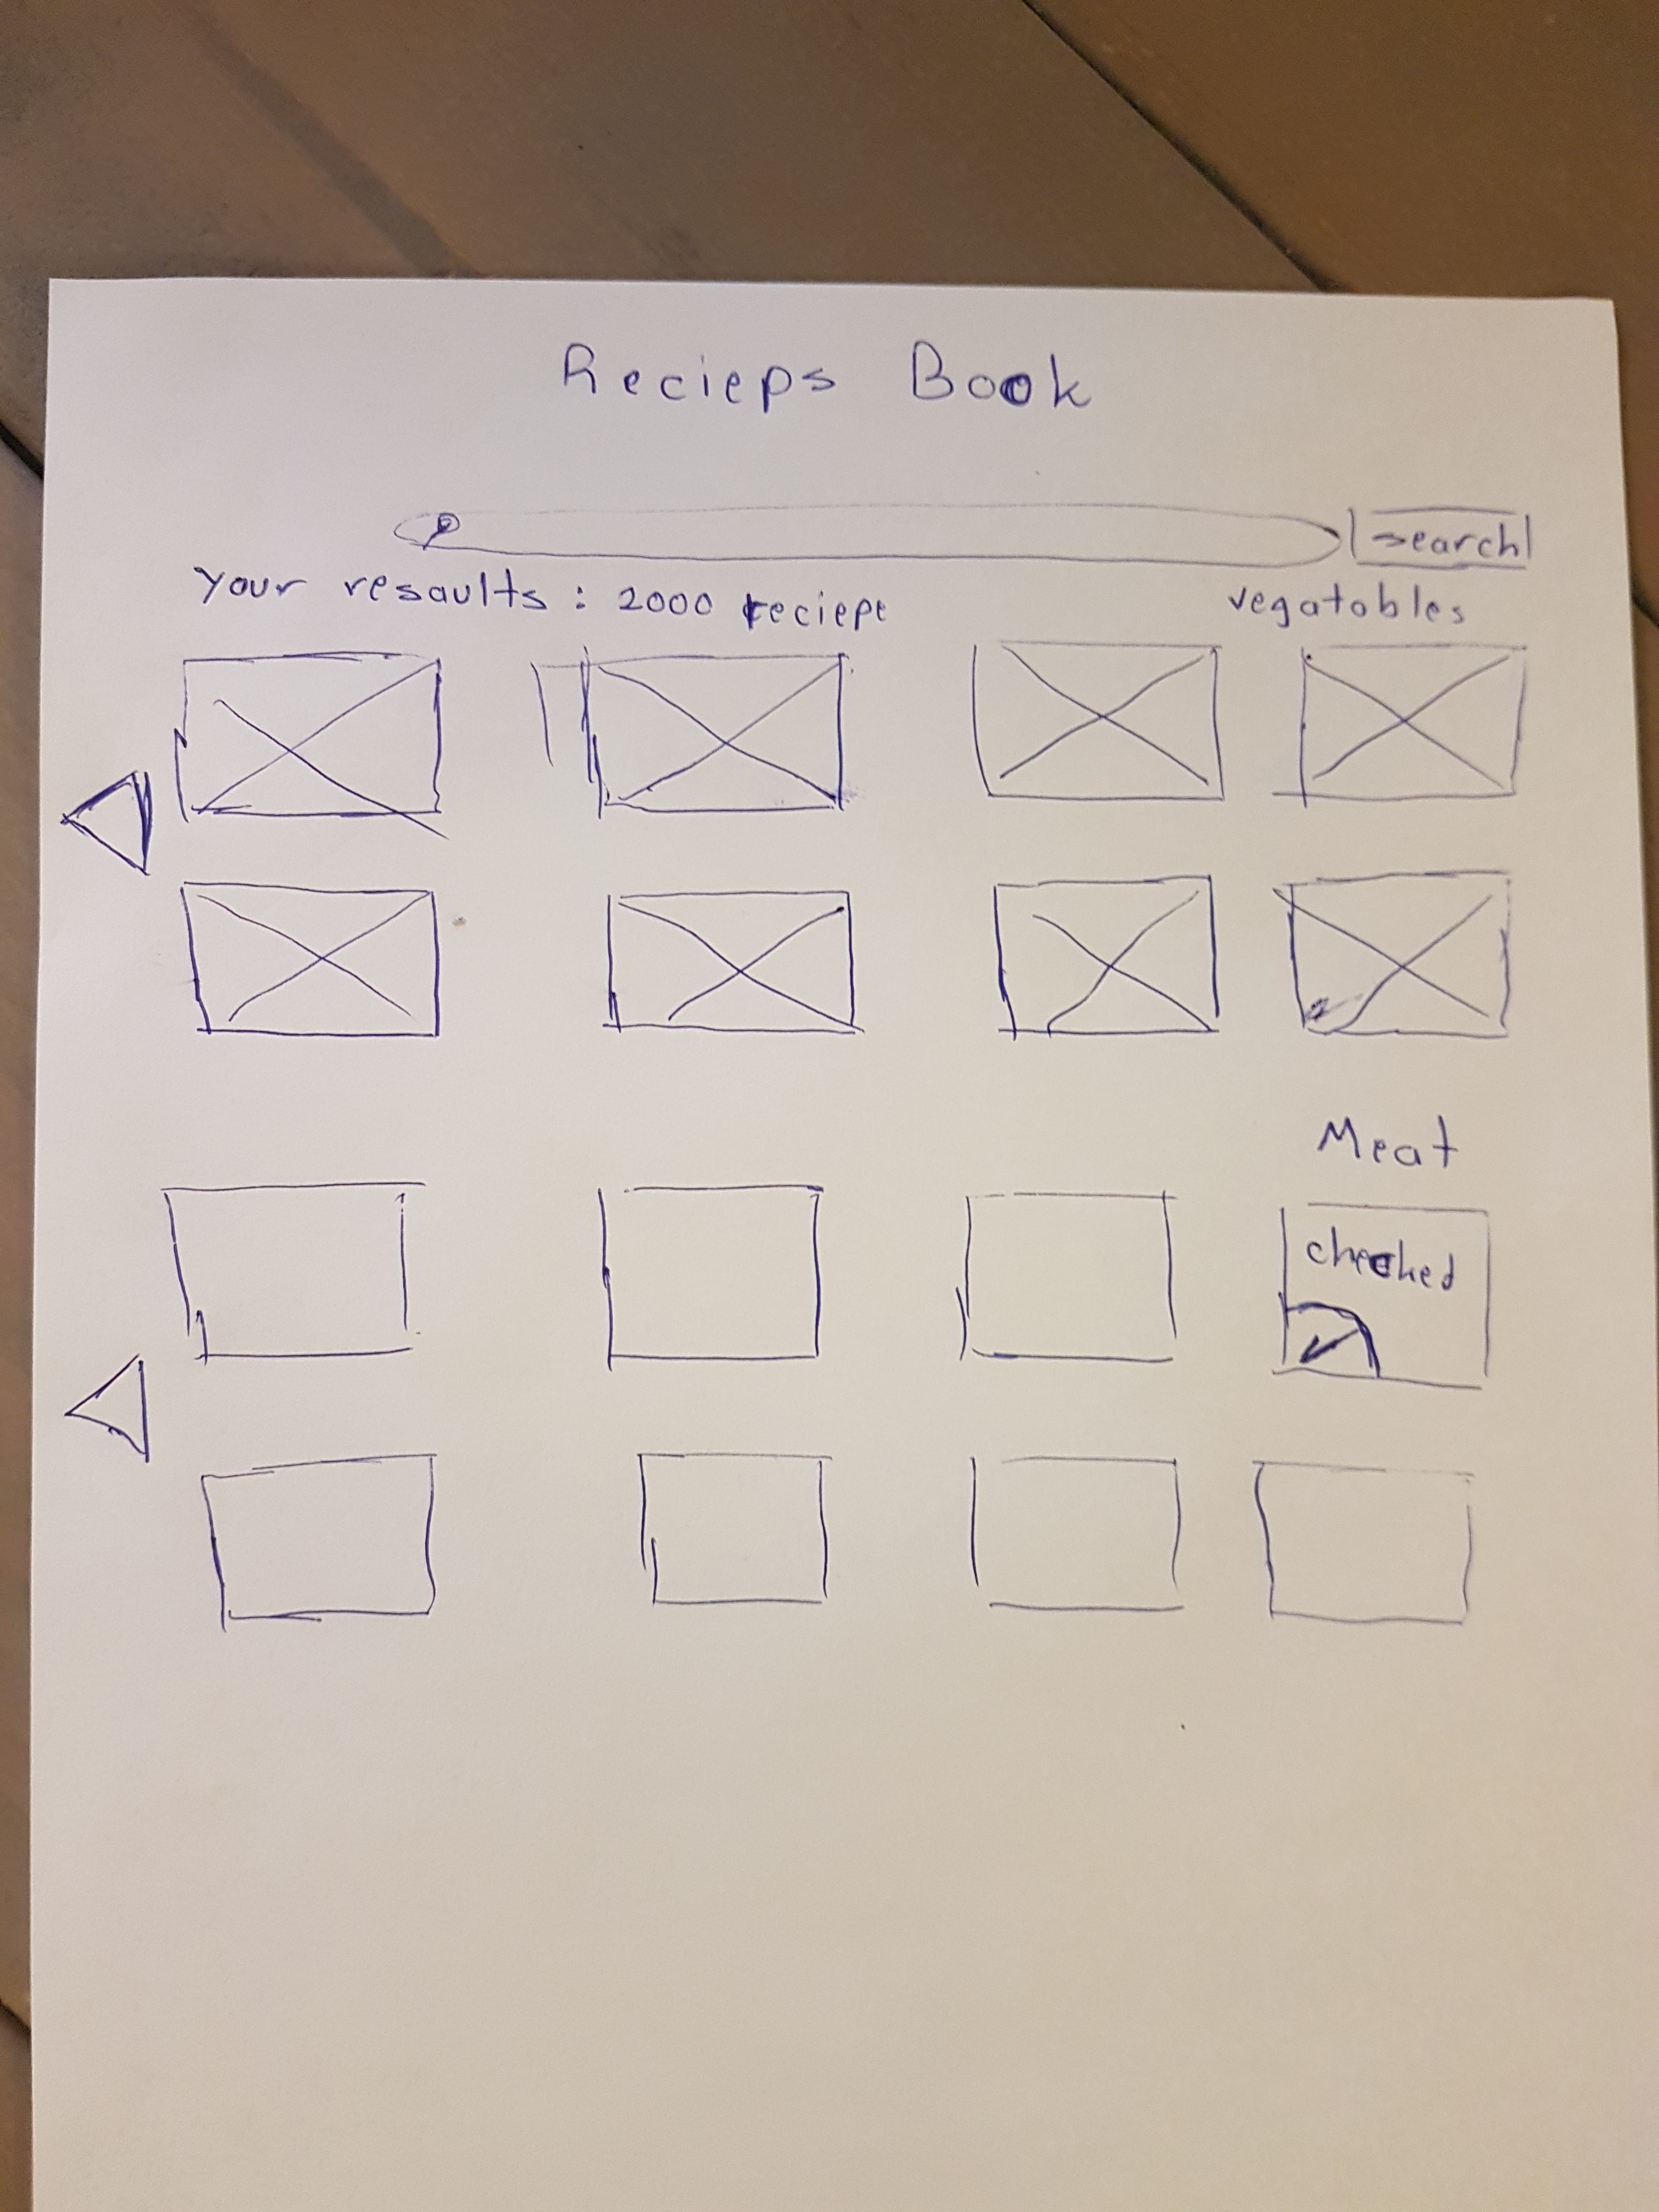 Recieps Book
search
Your resaults : 2000 reciept
vegatobles
Meat
checked